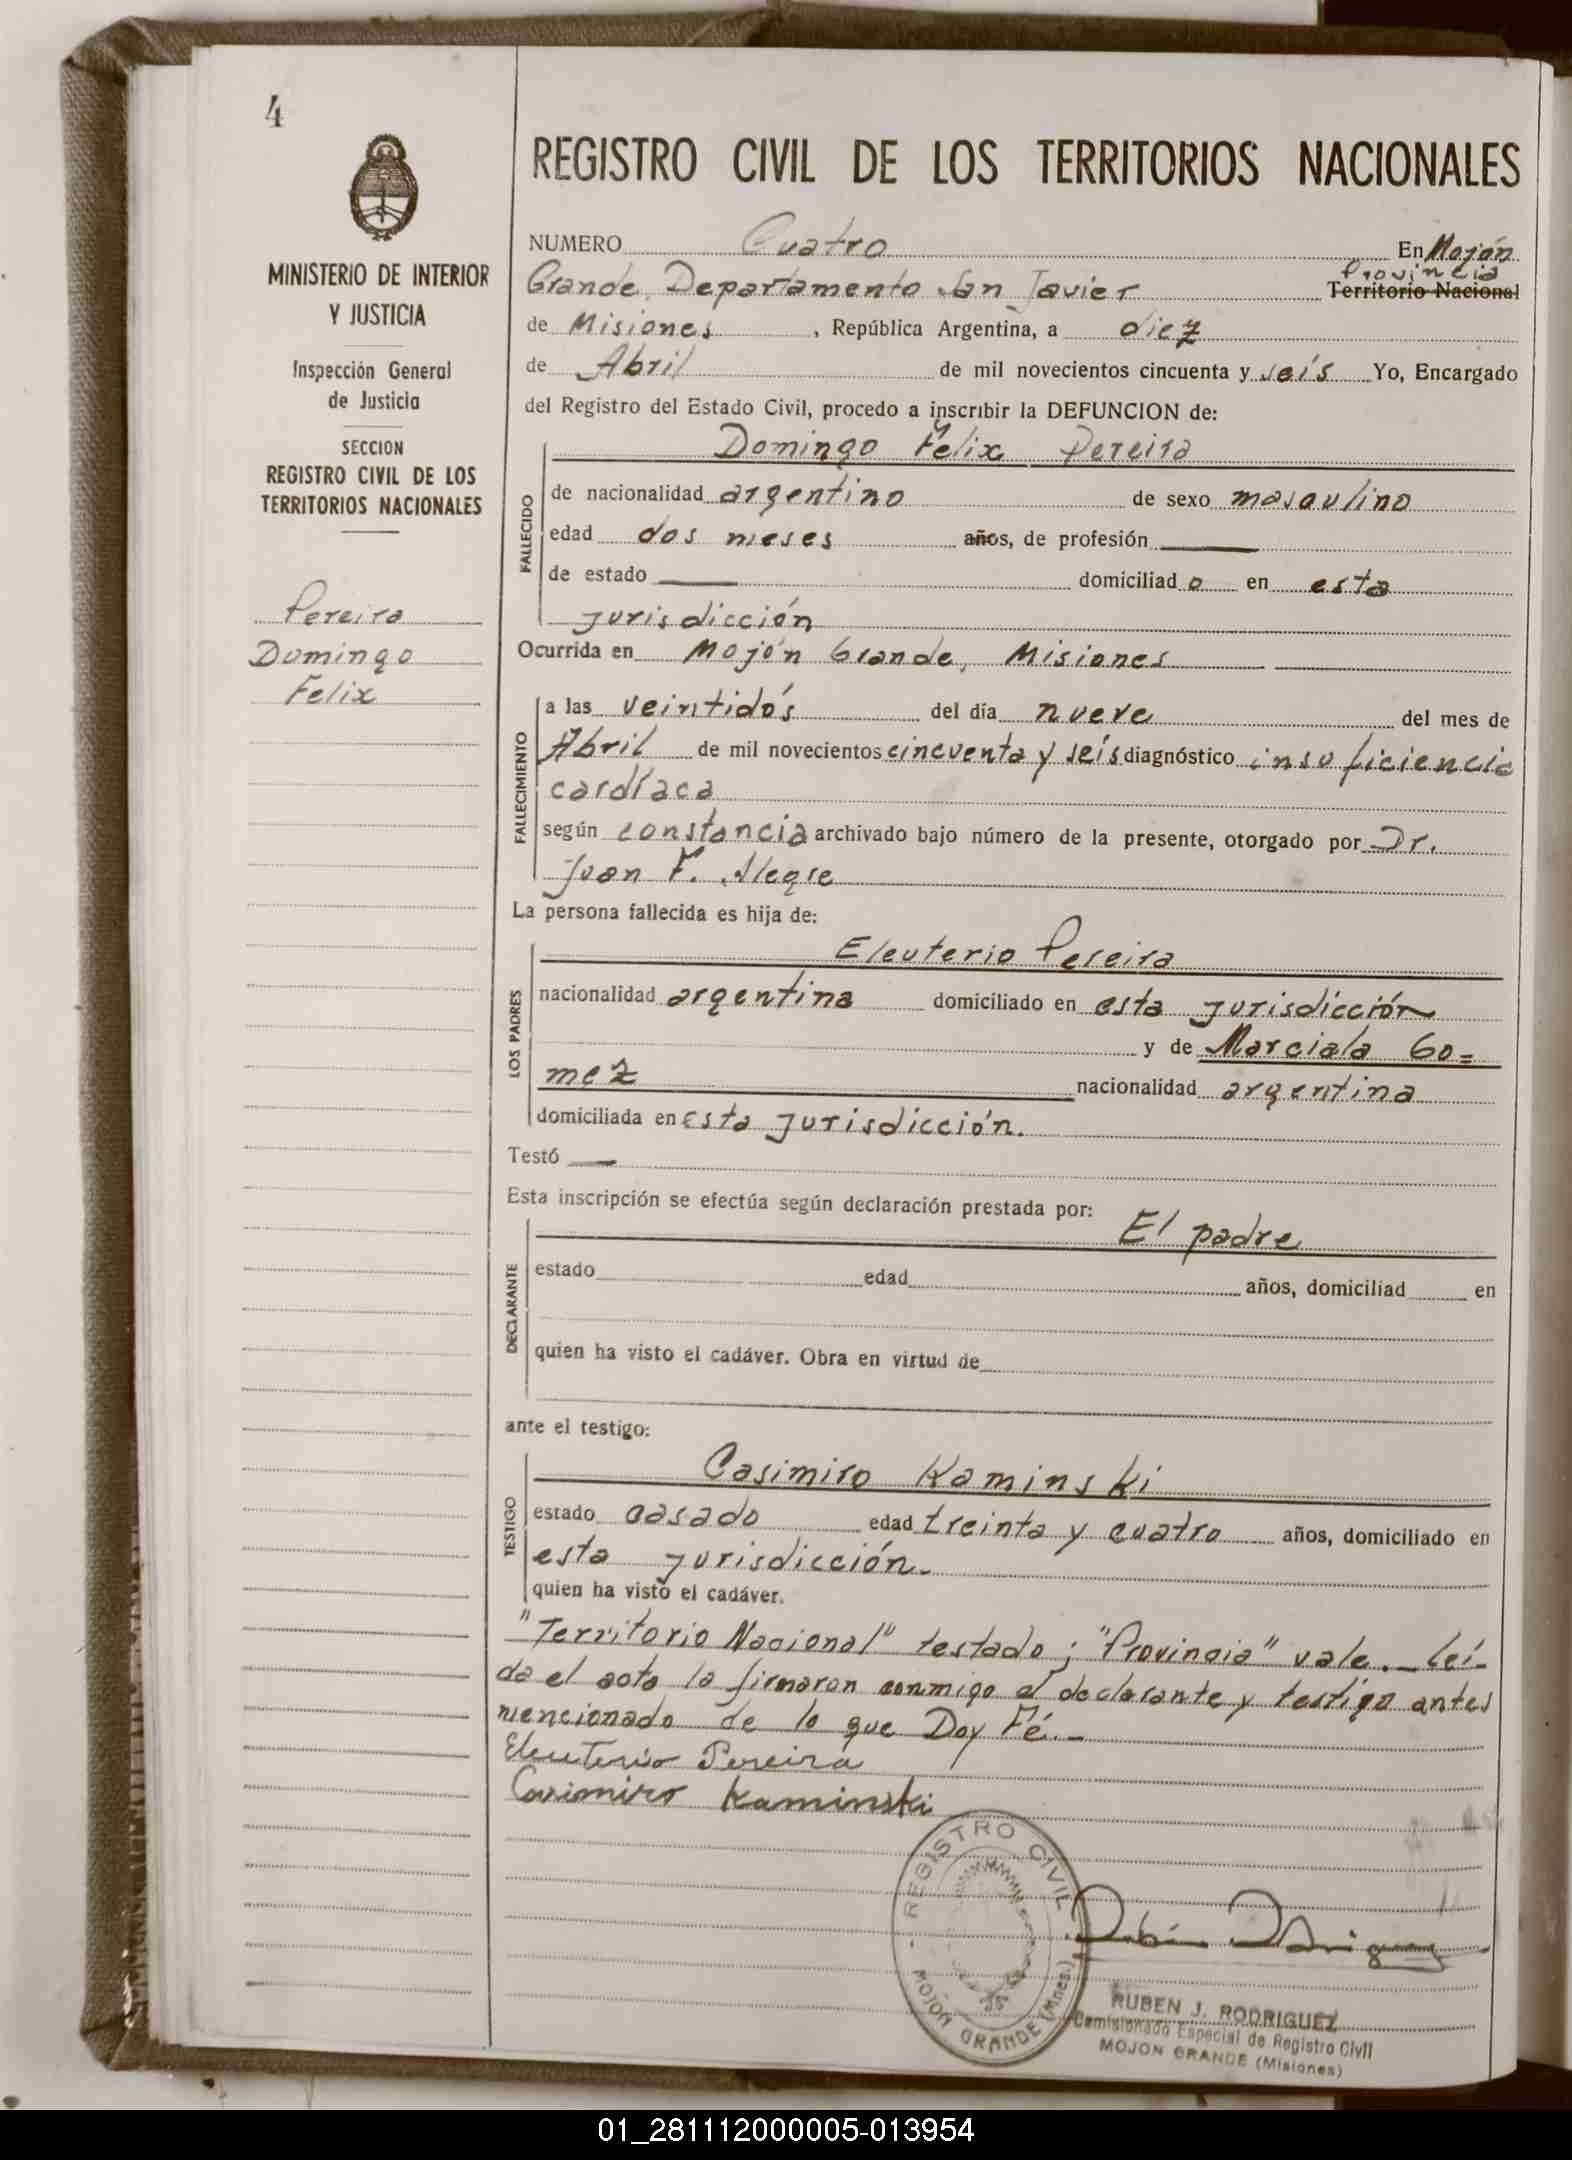 4
MINISTERIO DE INTERIOR
Y JUSTICIA
Inspección General
de Justicia
SECCION
REGISTRO CIVIL DE LOS
TERRITORIOS NACIONALES
Pereira
Domingo
Felix
REGISTRO CIVIL DE LOS TERRITORIOS NACIONALES
NUMERO Cuatro En Mojón
Provincia
Grande, Departamento San Javier Territorio Nacional
de Misiones, República Argentina, a diez
de Abril de mil novecientos cincuenta y seís Yo, Encargado
del Registro del Estado Civil, procedo a inscribir la DEFUNCION de:
FALLECIDO
Domingo Felix Pereira
de nacionalidad argentino de sexo masculino
edad dos meses años, de profesión —
de estado — domiciliado en esta
jurisdicción
Ocurrida en Mojón Grande, Misiones
FALLECIMIENTO
a las veintidós del día nueve del mes de
Abril de mil novecientos cincuenta y seís diagnóstico insuficiencia
cardíaca
según constancia archivado bajo número de la presente, otorgado por Dr.
Juan F. Alegre
La persona fallecida es hija de:
LOS PADRES
Eleuterio Pereira
nacionalidad argentina domiciliado en esta jurisdicción
y de Marciala Go=
mez nacionalidad argentina
domiciliada en esta jurisdicción.
Testó —
Esta inscripción se efectúa según declaración prestada por:
DECLARANTE
El padre
estado edad años, domiciliad en
quien ha visto el cadáver. Obra en virtud de
ante el testigo:
TESTIGO
Casimiro Kaminski
estado casado edad treinta y cuatro años, domiciliado en
esta jurisdicción.
quien ha visto el cadáver.
"Territorio Nacional" testado; "Provincia" vale.- Leí-
da el acta la firmaron conmigo el declarante y testigo antes
mencionado de lo que Doy Fé.-
Eleuterio Pereira
Casimiro Kaminski
REGISTRO CIVIL
MOJON GRANDE (Mnes.)
Rubén J Rodriguez
RUBEN J. RODRIGUEZ
Comisionado Especial de Registro Civil
MOJON GRANDE (Misiones)
01_281112000005-013954